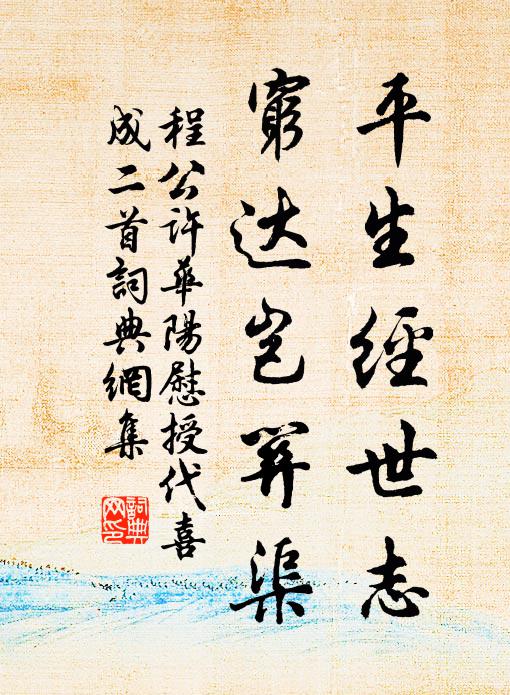 平生經世志
窮达岂關渠
程公許華陽慰授代喜
成二首詞典網集
詞典
网印